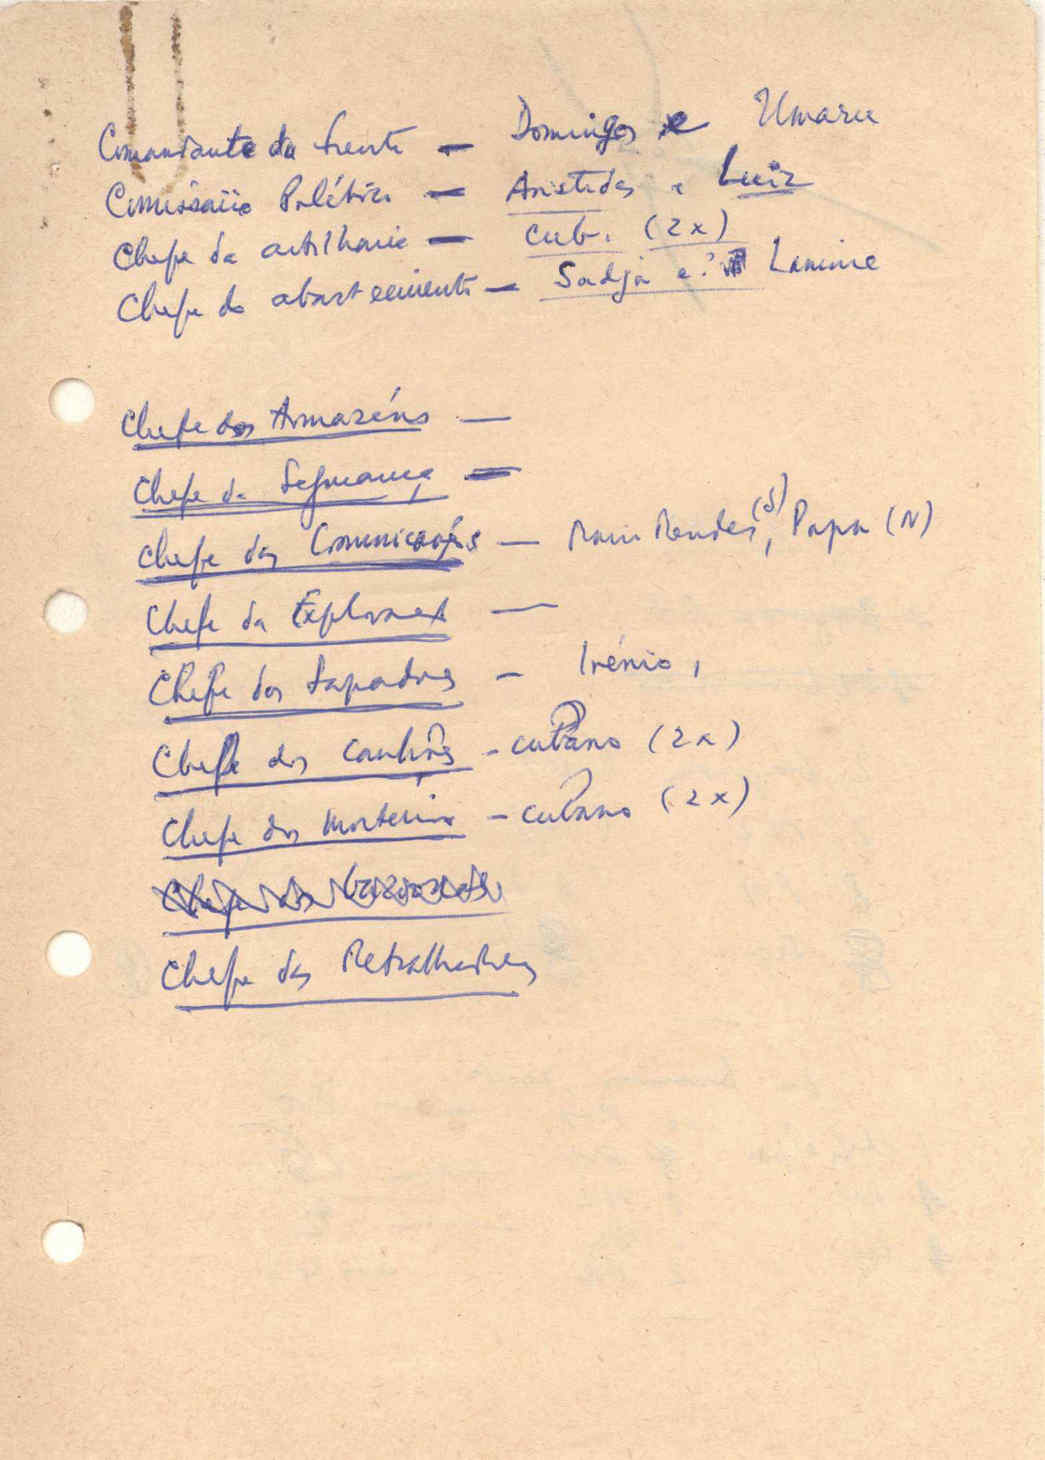 Comandante da frente — Domingos e Umaru
Comissário Político — Aristides e Luiz
Chefe da artilharia — cub. (2x)
Chefe do abastecimento — Sadjá e Lamine
Chefe dos Armazéns —
Chefe da Segurança —
Chefe das Comunicações — Mendes (S), Papa (N)
Chefe da —
Chefe dos Sapadores — Irénio,
Chefe dos Canhões - cubano (2x)
Chefe dos morteiros - cubano (2x)
Chefe das bazookas
Chefe das Metralhadoras